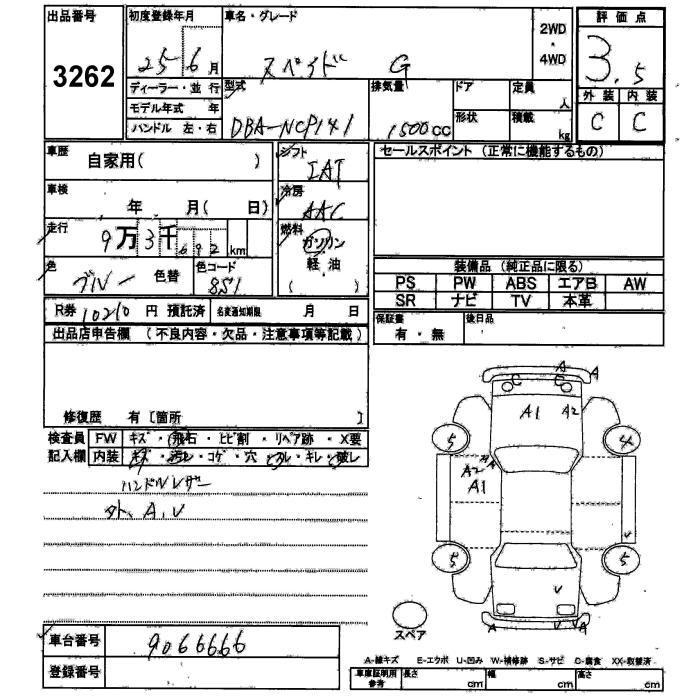 出品番号 初度登録年月 車名・グレード 2WD・4WD 評価点
3262 25 6月 スペイド G 3.5
ディーラー・並行 型式 排気量 ドア 定員 人 外装 内装
モデル年式 年 形状 積載 kg C C
ハンドル 左・右 DBA-NCP141 1500cc
車歴 自家用( ) シフト IAT セールスポイント (正常に機能するもの)
車検 年 月( 日) 冷房 AAC
走行 9万3千692km 燃料 ガソリン
軽・油
( )
色 ブルー 色替 色コード 8S1
装備品 (純正品に限る)
PS PW ABS エアB AW
SR ナビ TV 本革
R券 10210円 預託済 名変通知期限 月 日
保証書 有・無 後日品
出品店申告欄 (不良内容・欠品・注意事項等記載)
修復歴 有 [箇所 ]
検査員 FW キズ・飛石・ヒビ割・リペア跡・X要
記入欄 内装 キズ・汚レ・コゲ・穴・スレ・キレ・破レ
ハンドルレザー
外、A、V
A A
C C
A1 A2
5 4
A2 A
A1
V
5 5
V
A V V A
スペア
車台番号 9066666
登録番号
A-線キズ E-エクボ U-凹み W-補修跡 S-サビ C-腐食 XX-取替済
車庫証明用参考 長さ cm 幅 cm 高さ cm